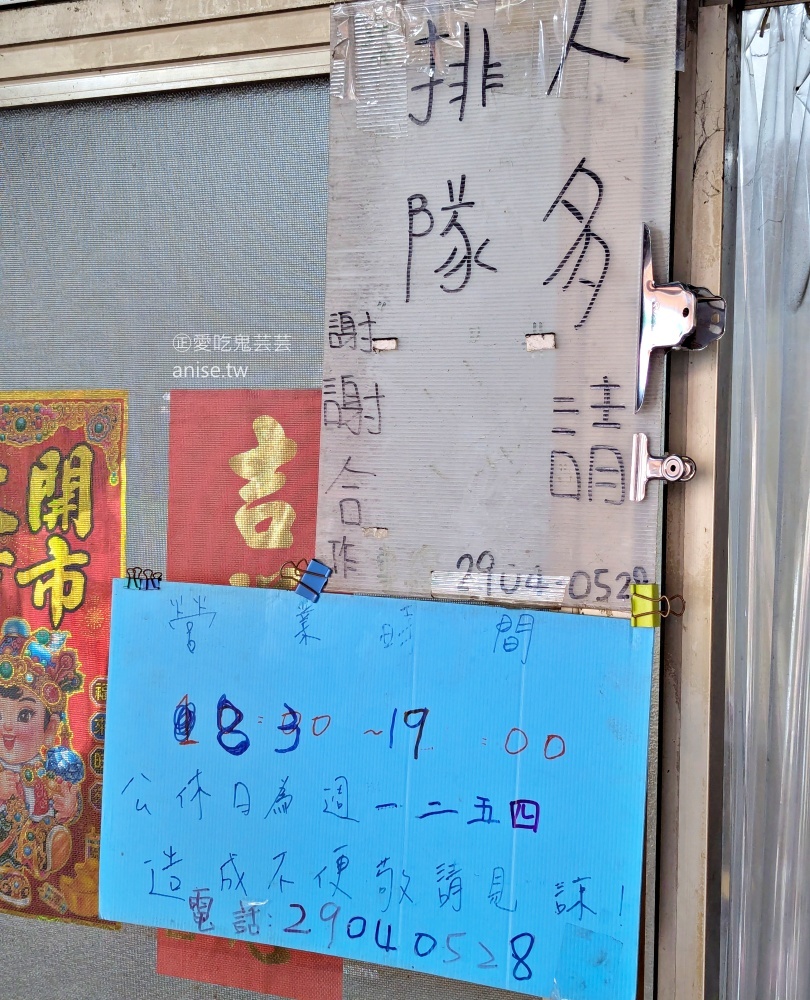 人多請
排隊
謝謝合作
2904-0528
㊣愛吃鬼芸芸
anise.tw
開市
吉
營業時間
18:30~19:00
公休日為週一二五四
造成不便敬請見諒!
電話:29040528